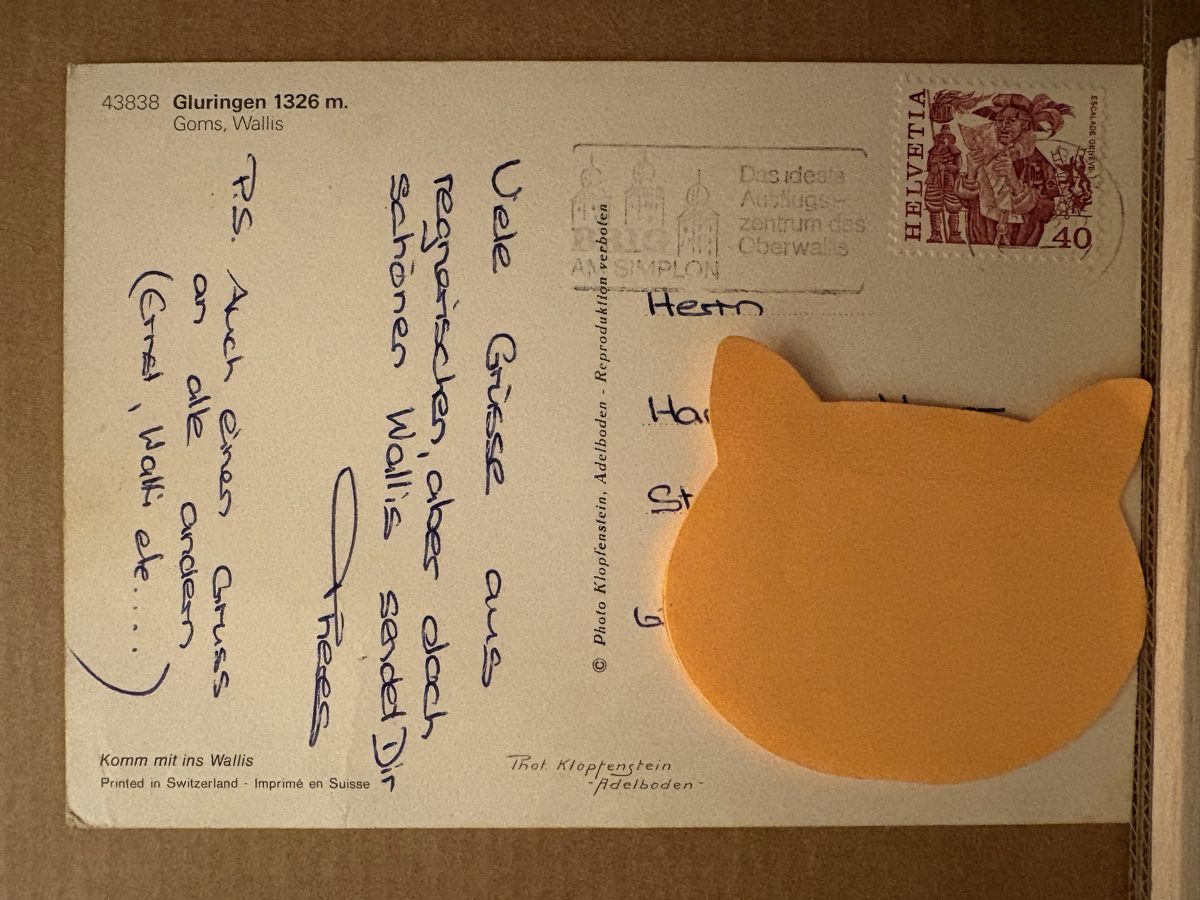 43838 Gluringen 1326 m.
Goms, Wallis
Viele Grüsse aus
regnerischen, aber doch
schönen Wallis sendet Dir
P.S. Auch einen Gruss
an alle andern
(Ernst, Walti etc....)
Komm mit ins Wallis
Printed in Switzerland - Imprimé en Suisse
© Photo Klopfenstein, Adelboden - Reproduktion verboten
Phot. Klopfenstein
-Adelboden-
BRIG
AM SIMPLON
Das ideale
Ausflugs-
zentrum des
Oberwallis
HELVETIA
ESCALADE GENÈVE
40
Herrn